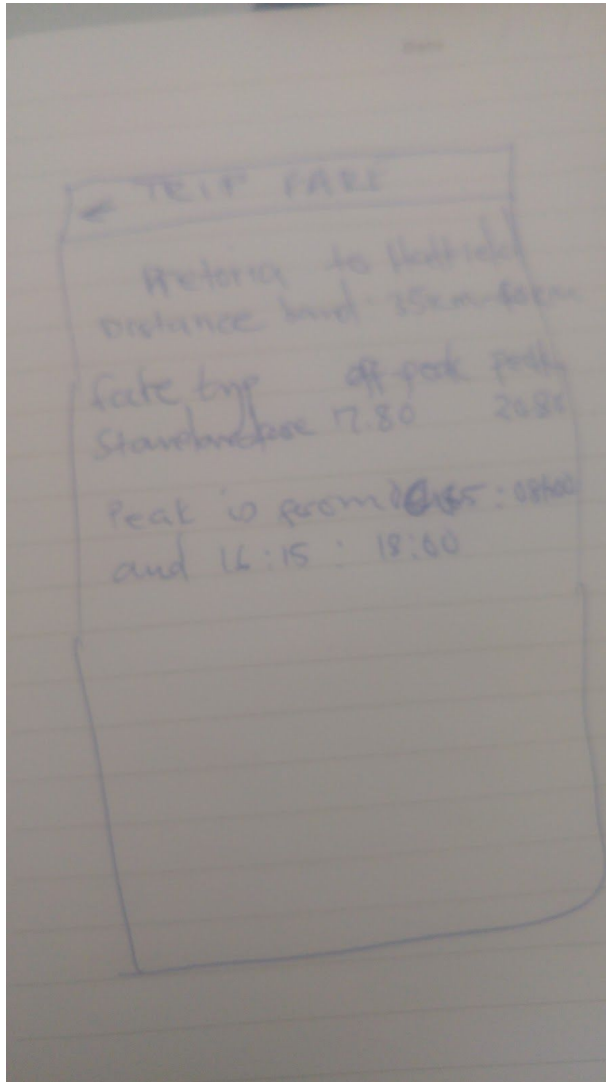 Date
← TRIP FARE
Pretoria to Hatfield
Distance band 35km-
Fare typ off peak peak
Standard 17.80 20.80
Peak is from : 08h00
and 16:15 : 18:00